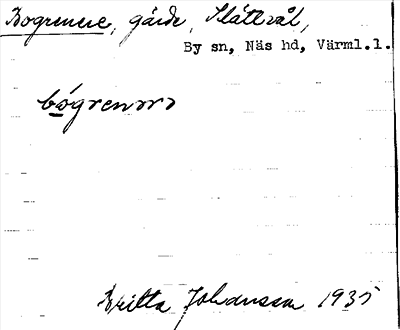 Bogrenere, gärde, Slättvål,
By sn, Näs hd, Värml.l.
bógrenər
Britta Johansson 1935